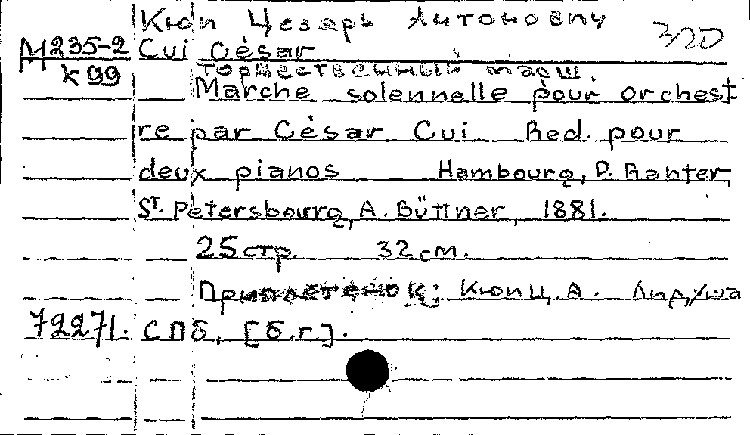 Кюи Цезарь Антонович 320
М235-2 Cui César
к 99 торжественный марш.
Marche solennelle pour orchest
re par César Cui Red. pour
deux pianos Hambourg, D. Rahter,
St. Petersbourg, A. Büttner, 1881.
25 стр. 32 см.
Приплетено к: Кюи Ц. А.
72271. СПб, [б.г.].